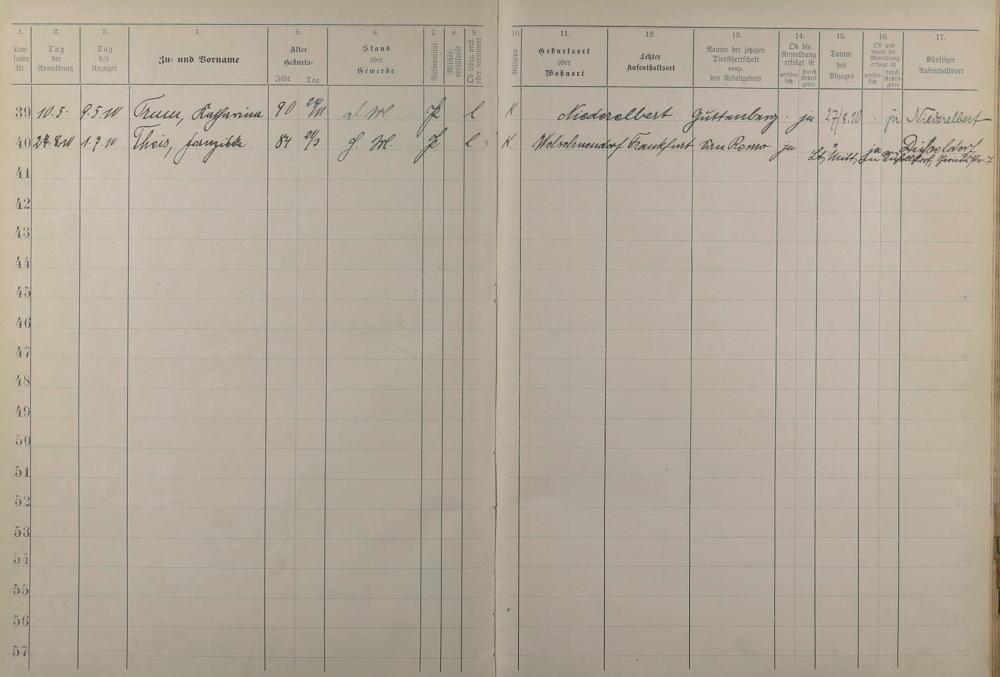 1. 2. 3. 4 5. 6. 7. 8. 9. 10. 11. 12 13. 14. 15. 16. 17.
Lau-
fende
Nr.
Tag
der
Anmeldung
Tag
des
Anzuges
Zu- und Vorname
Alter
Geburts-
Jahr Tag
Stand
oder
Gewerbe
Nationalität
Militär-
verhältnis
Ob ledig, verh.
oder verwitwet
Religion
Geburtsort
oder
Wohnort
Letzter
Aufenthaltsort
Namen der jetzigen
Dienstherrschaft
resp.
des Arbeitgebers
Ob die
Anmeldung
erfolgt ist
persön-
lich
durch
Arbeit
geber
Datum
des
Abzuges
Ob und
wann die
Abmeldung
erfolgt ist
persön-
lich
durch
Arbeit-
geber
Künftiger
Aufenthaltsort
39 10.5. 9.5.10 Katharina 90 l K Niederelbert ja 27/8.10 ja Niederelbert
40 1.7.10 Theis, Franziska 84 21/3 l K. Welschneudorf Frankfurt van Remo ja ja Düsseldorf
41
42
43
44
45
46
47
48
49
50
51
52
53
54
55
56
57